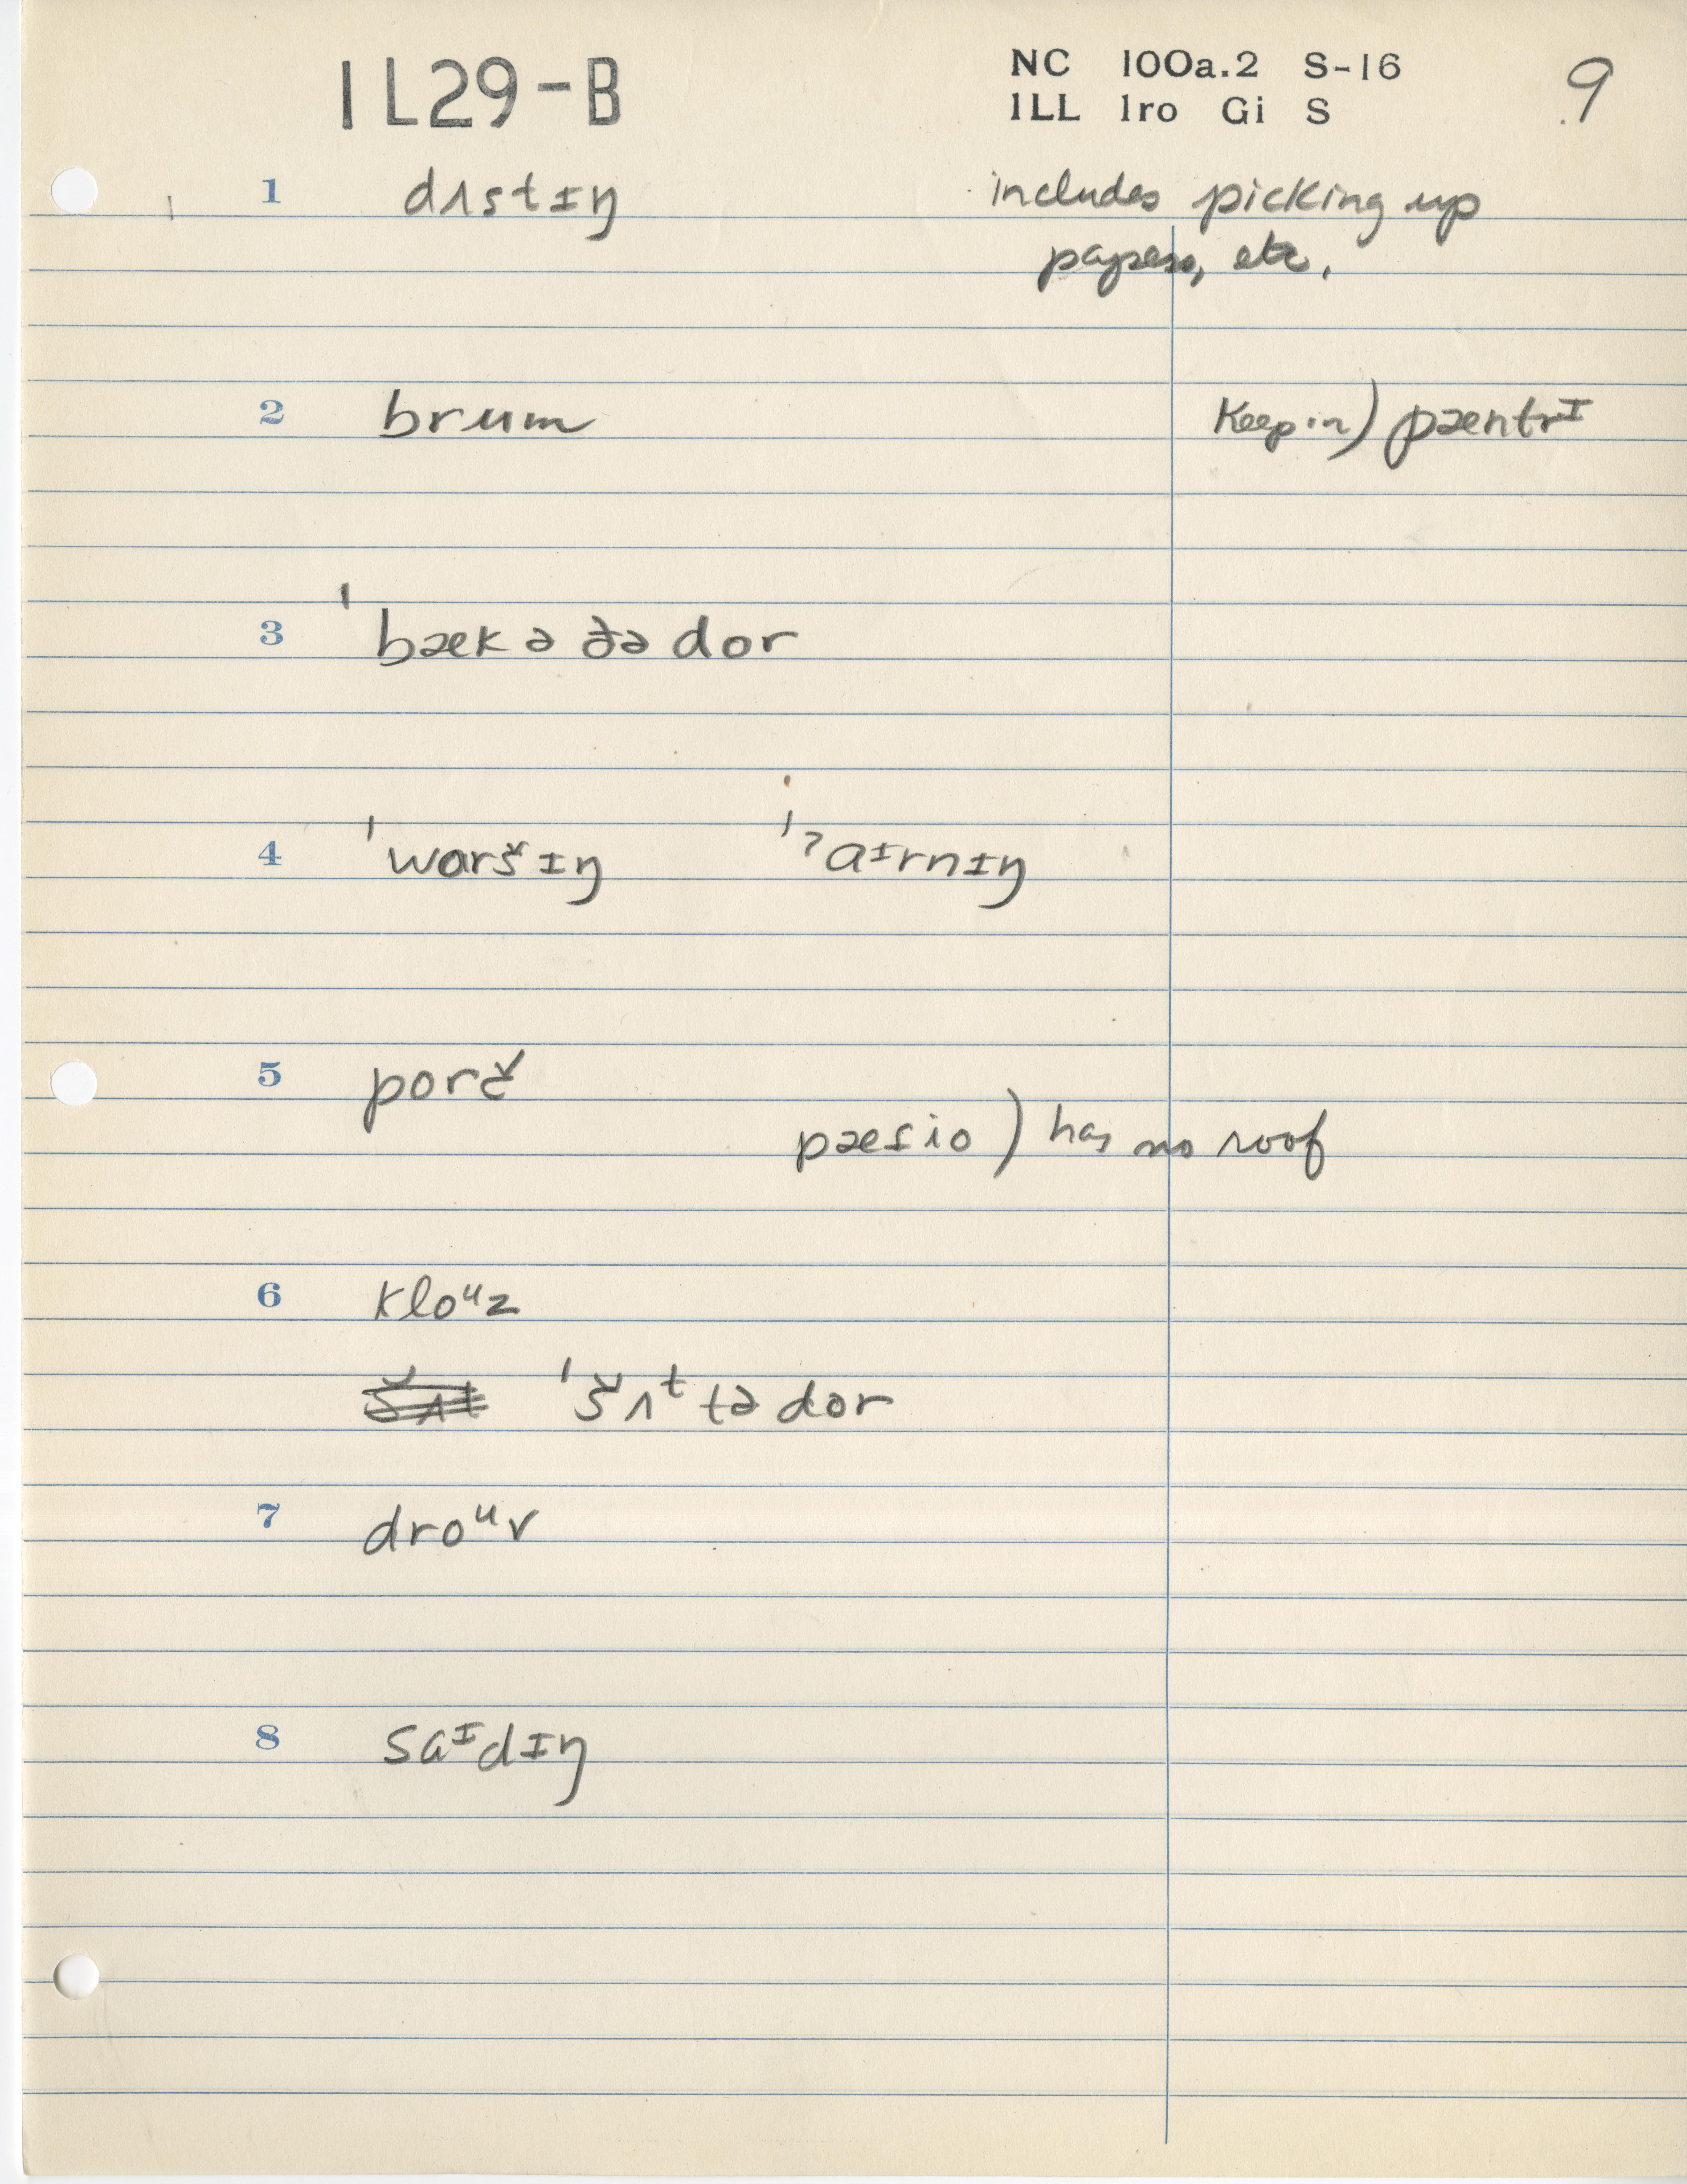 IL29-B
NC 100a.2 S-16
ILL Iro Gi S
9
1 dʌstɪŋ includes picking up
papers, etc.
2 brum Keep in) pæntrɪ
3 ˈbæk ə ðə dor
4 ˈwaršɪŋ ˈʔaɪrnɪŋ
5 porč
pæɾio) has no roof
6 kloᵘz
šʌt ˈšʌᵗ tə dor
7 droᵘv
8 saᶦdɪŋ